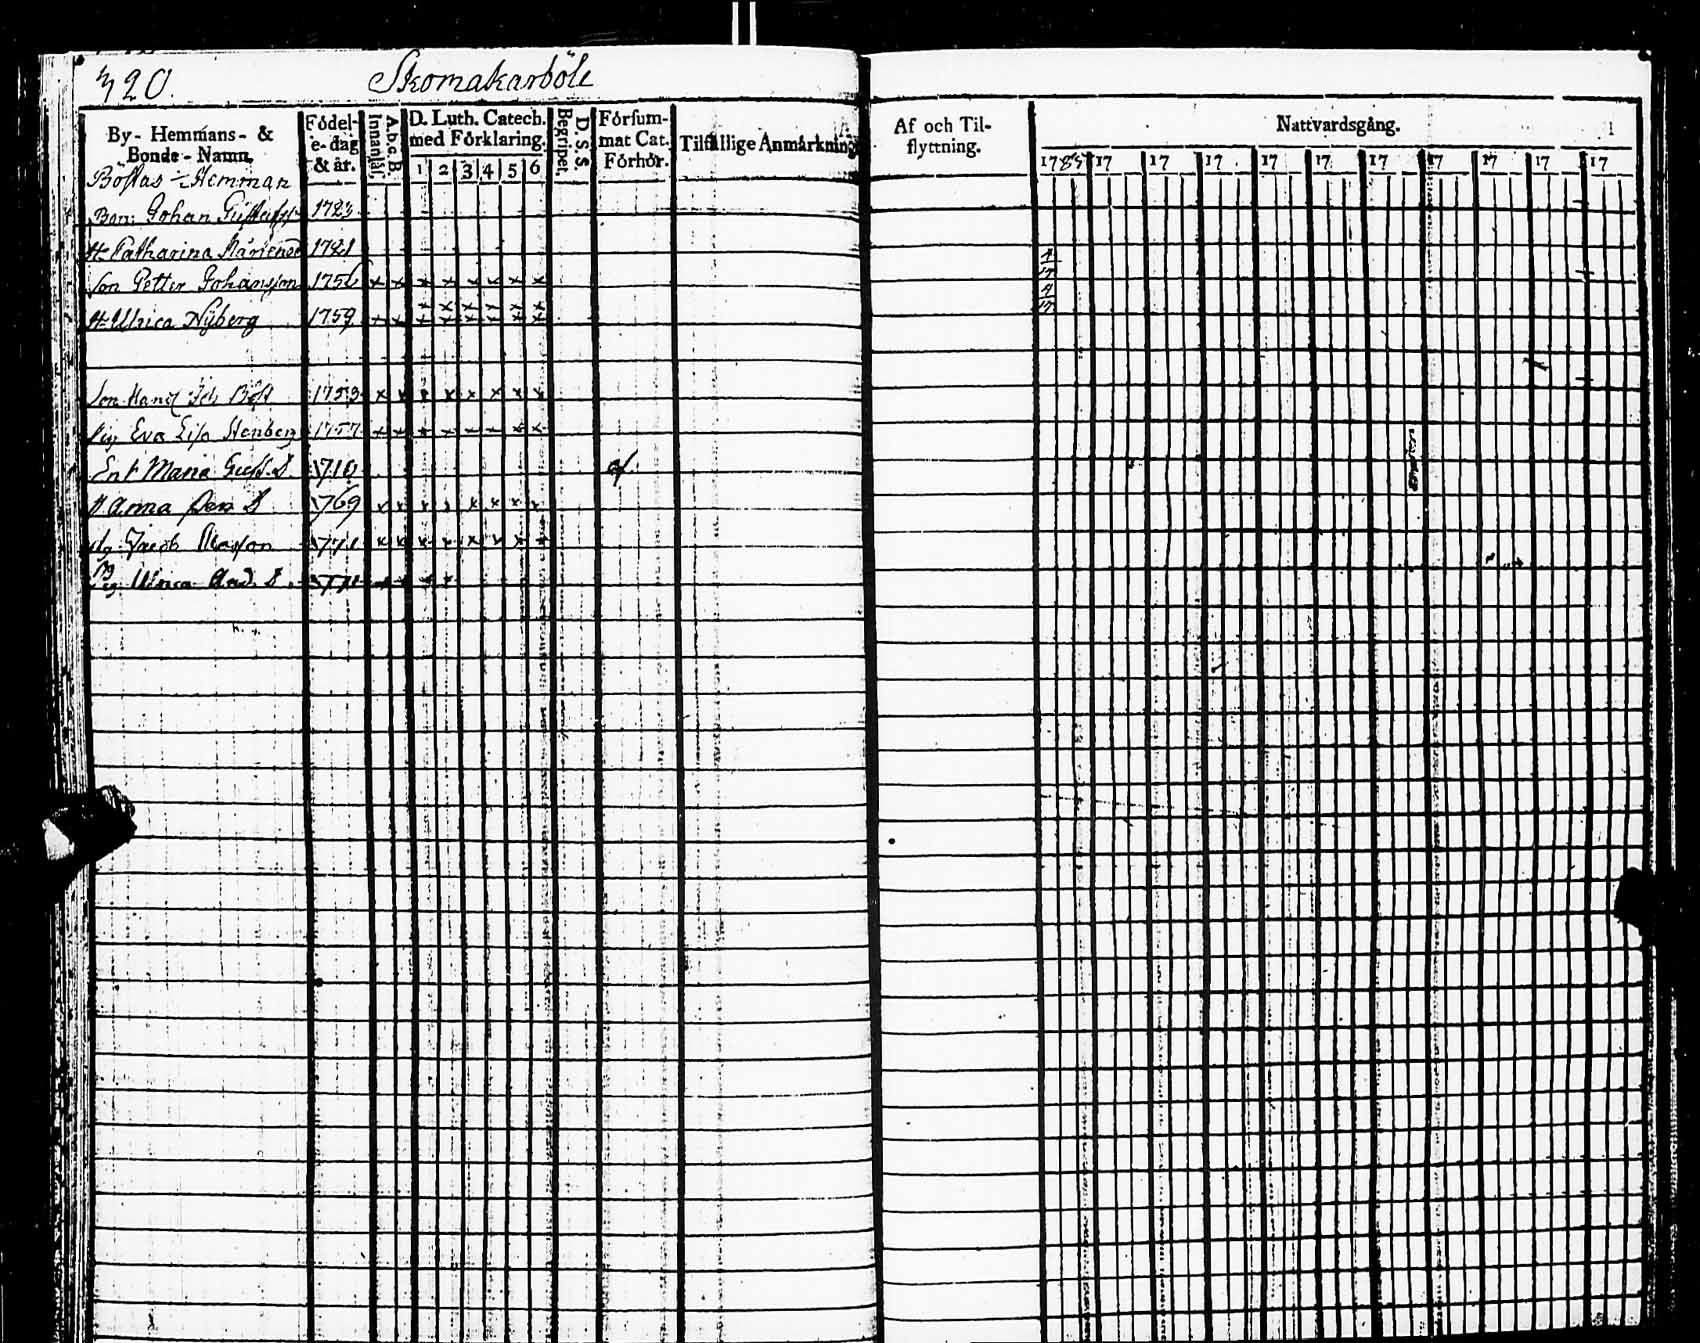 320. Skomakarböle
By- Hemmans- & Bonde-Namn.
Födel-e-dag & år.
Innanläs.
A.b.c.B.
D. Luth. Catech. med Förklaring.
1 2 3 4 5 6
Begripet.
D. S. S.
Försum-mat Cat. Förhör.
Tilfällige Anmärkning
Af och Til-flyttning.
Nattvardsgång.
1785 17 17 17 17 17 17 17 17 17 17
Böstas Hemman
Bon: Johan Gustafs 1723
H. Catharina 1721
Son Petter Johansson 1756 x x x x x x x x
H. Ulrica Nyberg 1759 x x x x x x x x
Son 1753 x x x x x x x x
Pig Eva Lisa Stenberg 1757 x x x x x x x x
Enk Maria Gust. D. 1710
Anna D 1769 x x x x x x x x
Jacob 1771 x x x x x x x x
Ulrica And. D. x x x x
4
17
4
17